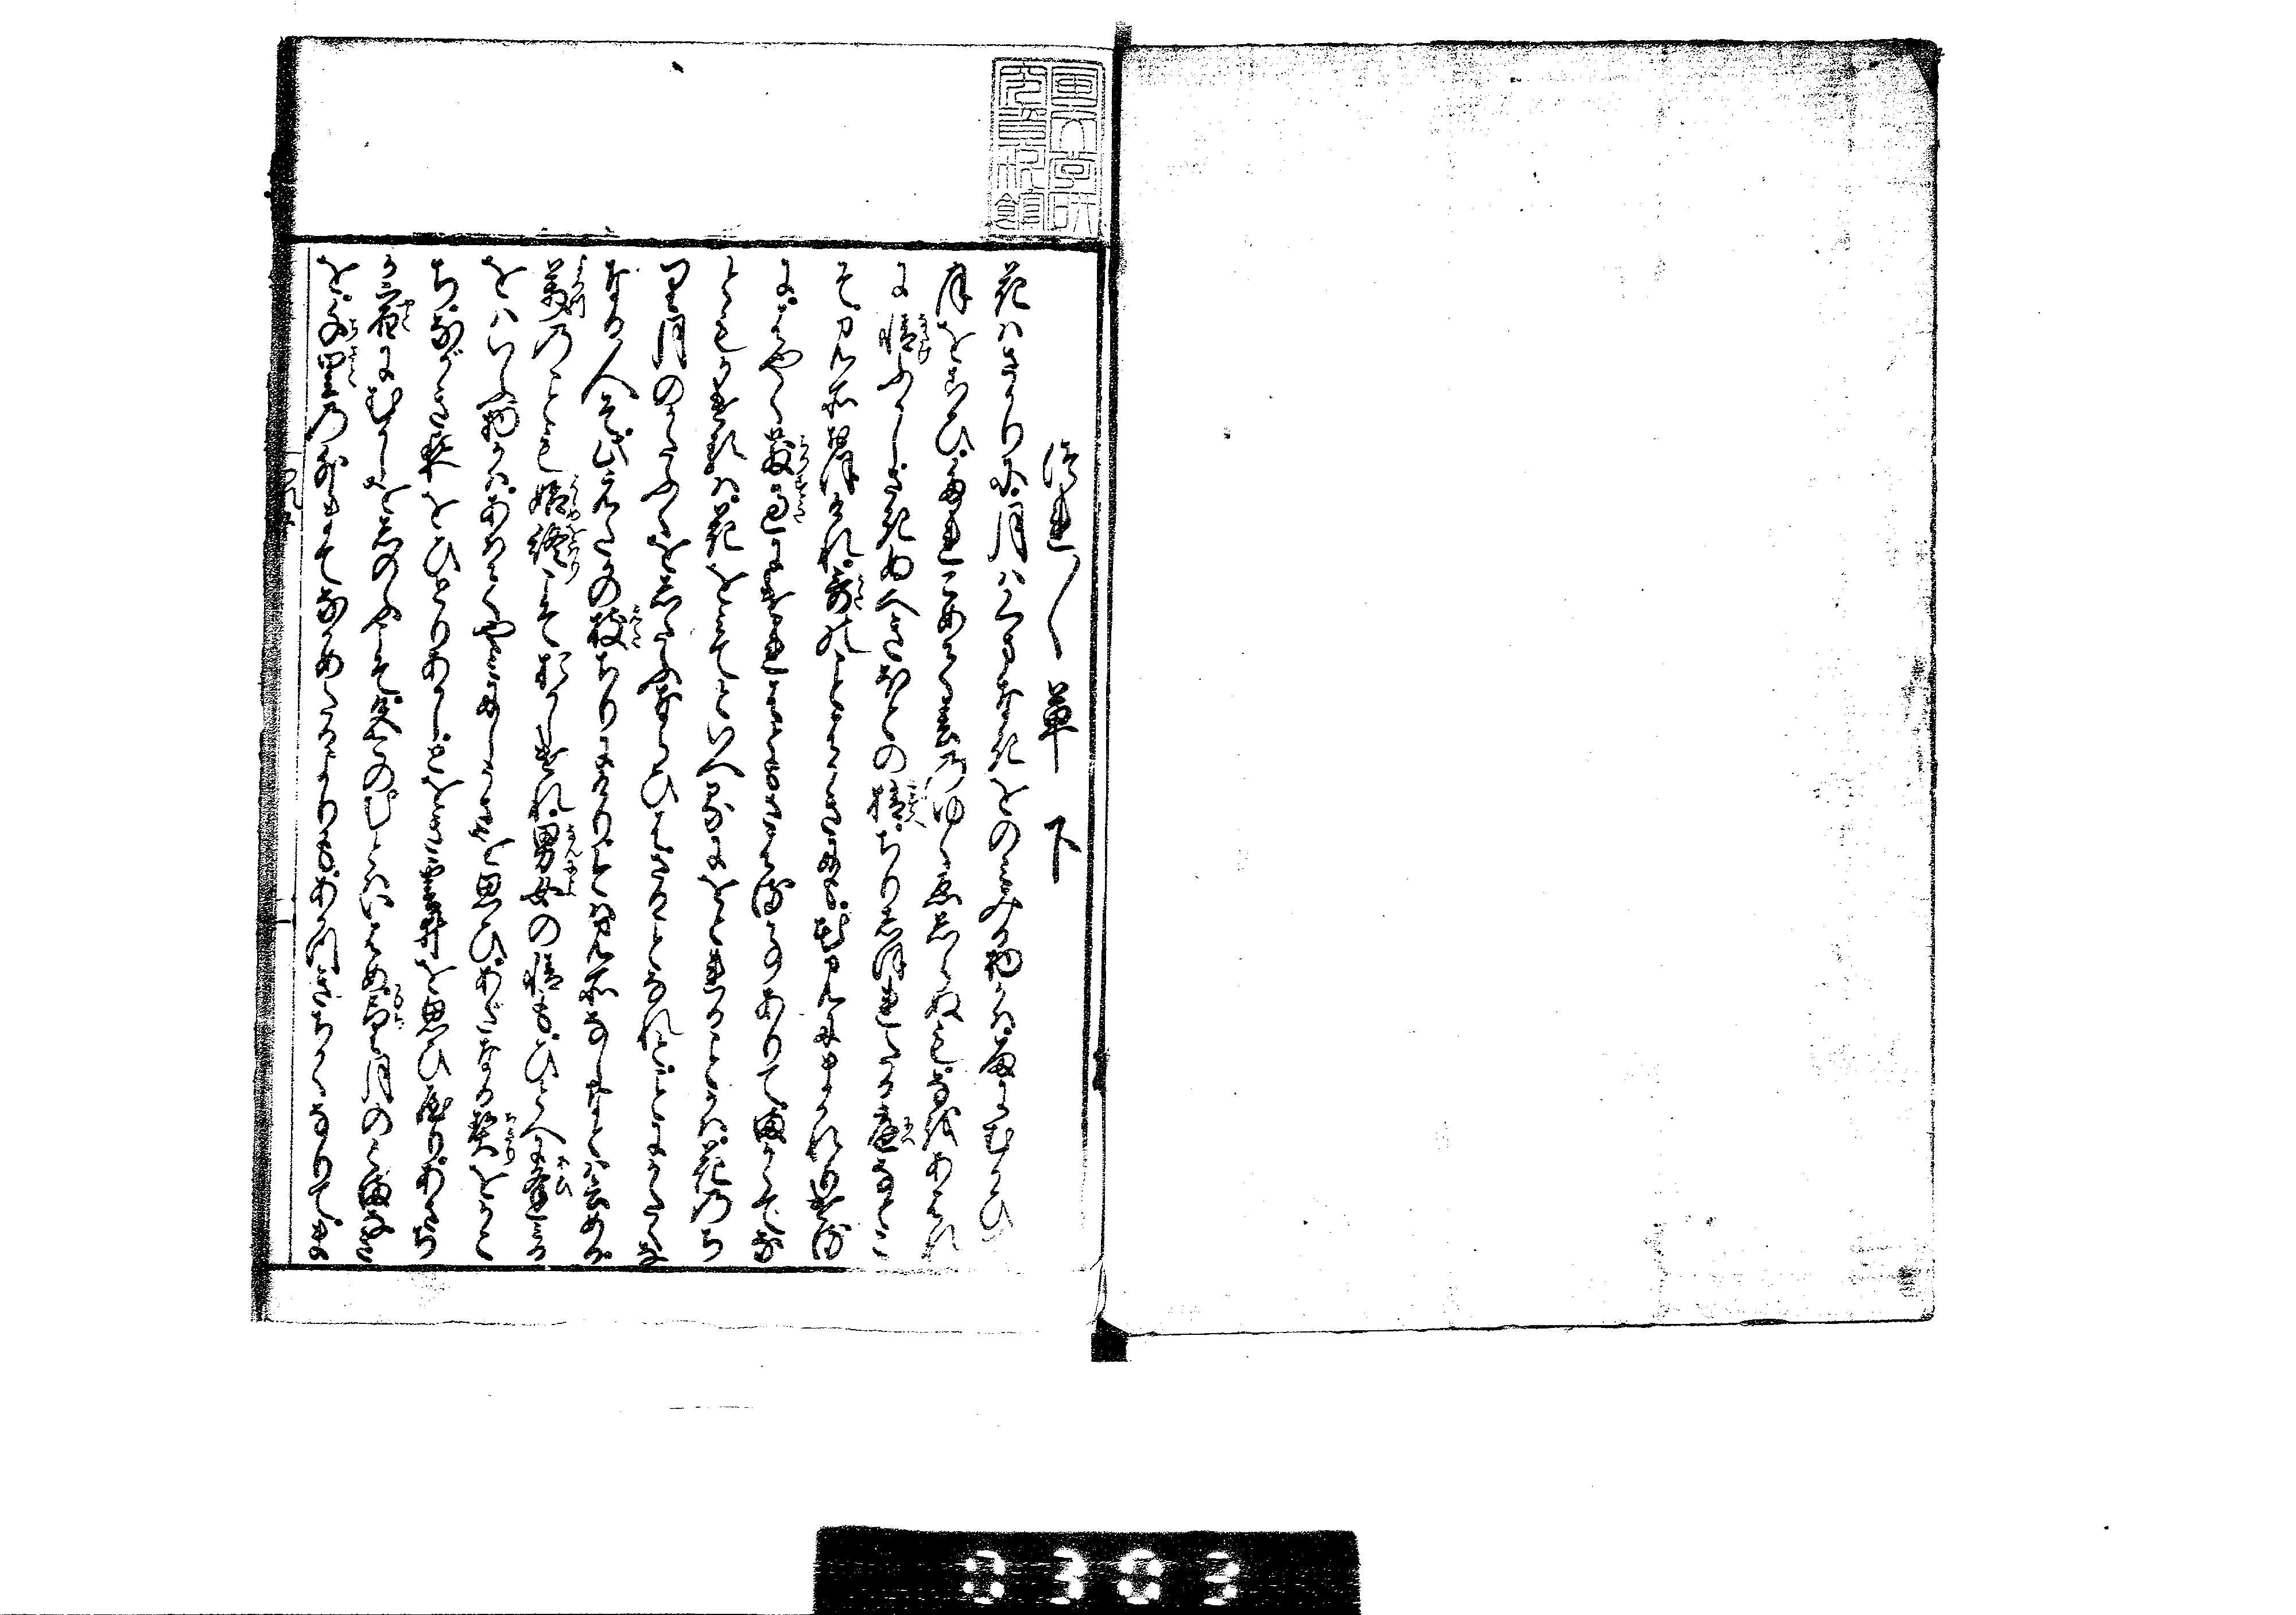 つれ〱草 下
花はさかりに月はくまなきをのみ見る物かは雨にむかひ
月をこひたれこめて春のゆくゑしらぬも猶あはれ
に情ふかしさきぬへきほとの梢ちりしほれたる庭なとこ
そ見所おほけれ哥のことはかきにも花見にまかれりける
にはやく散過にけれはともさはる事ありてまからてな
ともかけるは花を見てといへるにをとれる事かは花のち
り月のかたふくをしたふならひはさる事なれとことにかたくな
なる人そ此えたかの枝ちりにけり今は見所なしなとはいふめる
萬のことも始終こそおかしけれ男女の情もひとへに逢みる
をはいふ物かはあはてやみにしうさを思ひあたなる契をかこ
ちながき夜をひとりあかしとをき雲井を思ひやりあさち
か宿にむかしをしのふこそ色このむとはいはめ望月のくまなき
を千里の外まてなかめたるよりもあかつきちかくなりてま
つれ下
一
0303